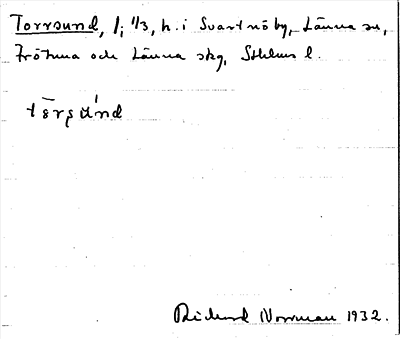 Torrsund, l; 1/3, h. i Svartnö by, Länna sn,
Frötuna och Länna skg, Sthlms l.
tòrsúnd
Rickard Norrman 1932.